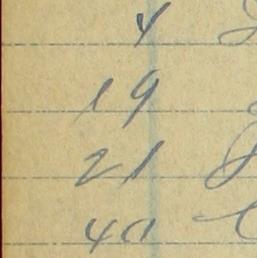 4
19
21
40